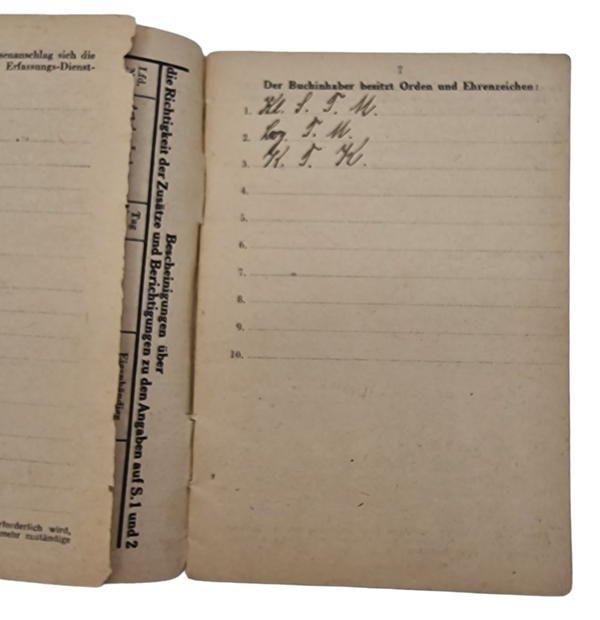 senanschlag sich die
Erfassungs-Dienst-
rforderlich wird,
mehr zuständige
Bescheinigungen über
die Richtigkeit der Zusätze und Berichtigungen zu den Angaben auf S. 1 und 2
Lfd.
Tag
Eigenhändige
7
Der Buchinhaber besitzt Orden und Ehrenzeichen:
1. Kl. S. T. M.
2. T. M.
3. K. T. K.
4.
5.
6.
7.
8.
9.
10.